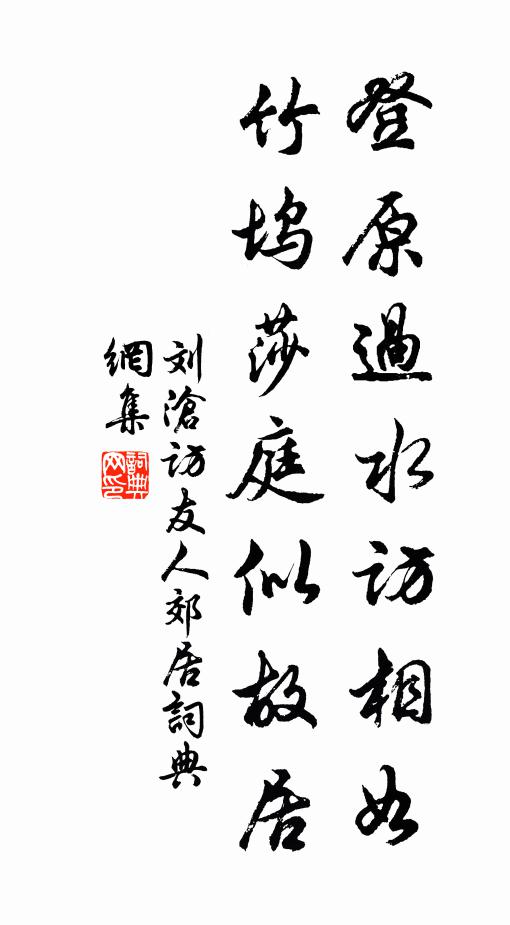 登原過水訪相如
竹塢莎庭似故居
刘滄訪友人郊居詞典
網集
詞典网印